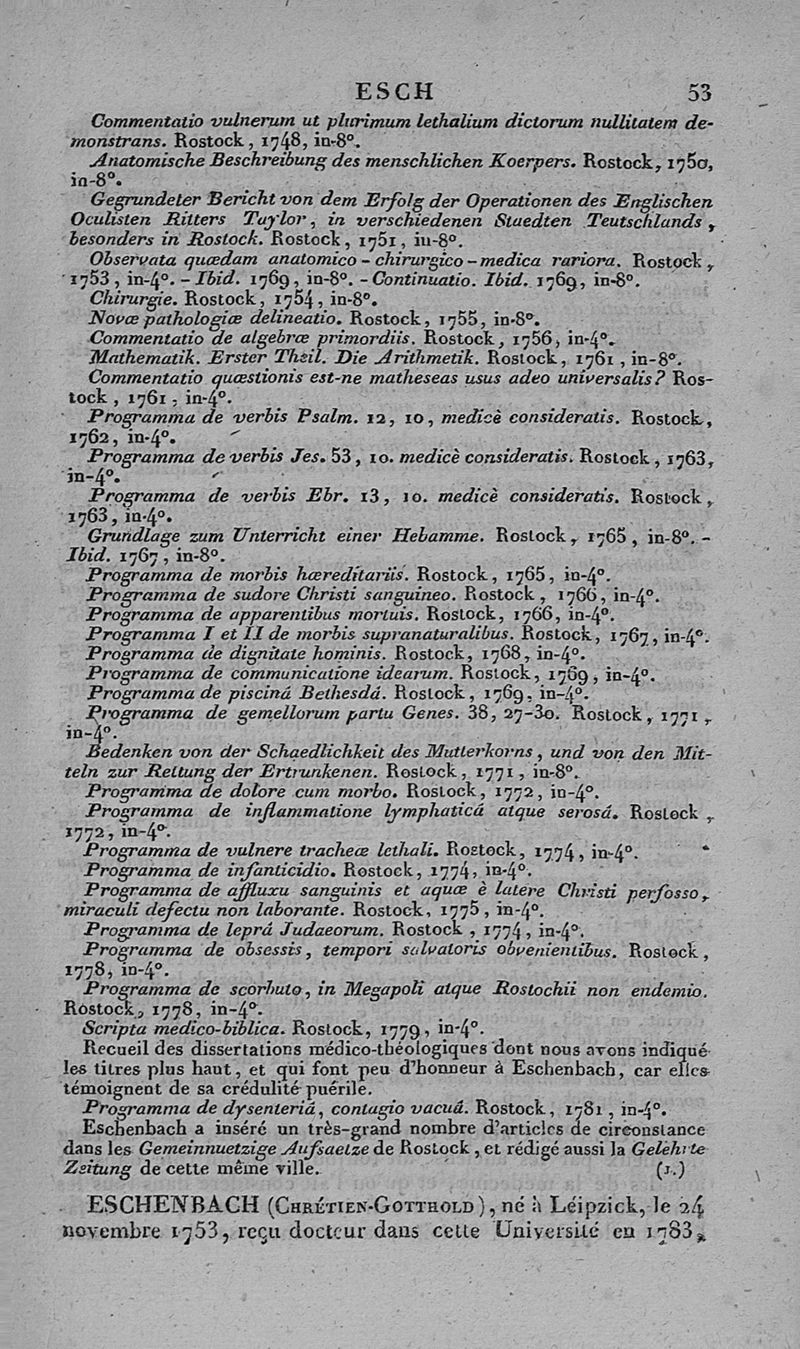 ESCH 53
Commentatio vulnerum ut plurimum lethalium dictorum nullitatem de-
monstrans. Rostock, 1748, in-8°.
Anatomische Beschreibung des menschlichen Koerpers. Rostock, 1750,
in-8°.
Gegrundeter Bericht von dem Erfolg der Operationen des Englischen
Oculisten Ritters Taylor, in verschiedenen Staedten Teutschlands,
besonders in Rostock. Rostock, 1751, in-8°.
Observata quædam anatomico-chirurgico-medica rariora. Rostock,
1753, in-4°. - Ibid. 1769, in-8°. - Continuatio. Ibid. 1769, in-8°.
Chirurgie. Rostock, 1754, in-8°.
Novæ pathologiæ delineatio. Rostock, 1755, in-8°.
Commentatio de algebræ primordiis. Rostock, 1756, in-4°.
Mathematik. Erster Theil. Die Arithmetik. Rostock, 1761, in-8°.
Commentatio quæstionis est-ne matheseas usus adeo universalis? Ros-
tock, 1761, in-4°.
Programma de verbis Psalm. 12, 10, medicè consideratis. Rostock,
1762, in-4°.
Programma de verbis Jes. 53, 10. medicè consideratis. Rostock, 1763,
in-4°.
Programma de verbis Ebr. 13, 10. medicè consideratis. Rostock,
1763, in-4°.
Grundlage zum Unterricht einer Hebamme. Rostock, 1765, in-8°. -
Ibid. 1767, in-8°.
Programma de morbis hæreditariis. Rostock, 1765, in-4°.
Programma de sudore Christi sanguineo. Rostock, 1766, in-4°.
Programma de apparentibus mortuis. Rostock, 1766, in-4°.
Programma I et II de morbis supranaturalibus. Rostock, 1767, in-4°.
Programma de dignitate hominis. Rostock, 1768, in-4°.
Programma de communicatione idearum. Rostock, 1769, in-4°.
Programma de pisciná Bethesdá. Rostock, 1769, in-4°.
Programma de gemellorum partu Genes. 38, 27-30. Rostock, 1771,
in-4°.
Bedenken von der Schaedlichkeit des Mutterkorns, und von den Mit-
teln zur Rettung der Ertrunkenen. Rostock, 1771, in-8°.
Programma de dolore cum morbo. Rostock, 1772, in-4°.
Programma de inflammatione lymphaticá atque serosá. Rostock,
1772, in-4°.
Programma de vulnere tracheæ lethali. Rostock, 1774, in-4°.
Programma de infanticidio. Rostock, 1774, in-4°.
Programma de affluxu sanguinis et aquæ è latere Christi perfosso,
miraculi defectu non laborante. Rostock, 1775, in-4°.
Programma de leprá Judaeorum. Rostock, 1774, in-4°.
Programma de obsessis, tempori salvatoris obvenientibus. Rostock,
1778, in-4°.
Programma de scorbuto, in Megapoli atque Rostochii non endemio.
Rostock, 1778, in-4°.
Scripta medico-biblica. Rostock, 1779, in-4°.
Recueil des dissertations médico-théologiques dont nous avons indiqué
les titres plus haut, et qui font peu d'honneur à Eschenbach, car elles
témoignent de sa crédulité puérile.
Programma de dysenteriá, contagio vacuá. Rostock, 1781, in-4°.
Eschenbach a inséré un très-grand nombre d'articles de circonstance
dans les Gemeinnuetzige Aufsaetze de Rostock, et rédigé aussi la Gelehrte
Zeitung de cette même ville. (J.)
ESCHENBACH (CHRÉTIEN-GOTTHOLD), né à Léipzick, le 24
novembre 1753, reçu docteur dans cette Université en 1783,